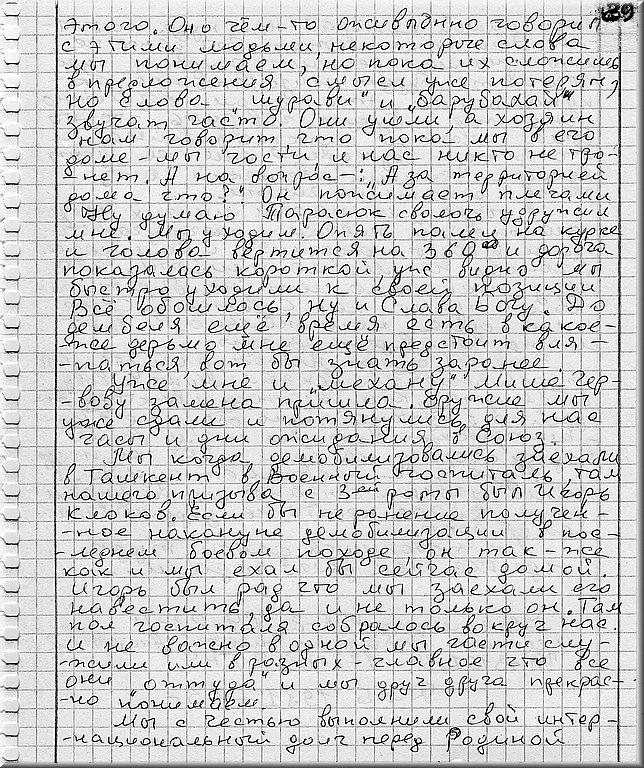 этого. Он о чём-то оживлённо говорил
с этими людьми, некоторые слова
мы понимаем, но пока их сложишь
в предложения смысл уже потерян,
но слова "шурави" и "барубахай"
звучат часто. Они ушли, а хозяин
нам говорит, что пока мы в его
доме - мы гости, и нас никто не тро-
-нет. А на вопрос -: "А за территорией
дома что?" Он пожимает плечами
Ну думаю Тарасюк сволочь удружил
мне. Мы уходим. Опять палец на курке
и голова вертится на 360° и дорога
показалась короткой, уж видно мы
быстро уходили к своей позиции
Всё обошлось, ну и Слава Богу. До
дембеля ещё время есть в какое-
-же дерьмо мне ещё предстоит вля-
-паться, вот бы знать заранее.
Уже мне и "механу" Мише Чер-
-вову замена пришла. Оружие мы
уже сдали и потянулись для нас
часы и дни ожидания в Союз.
Мы когда демобилизовались заехали
в Ташкент в Военный госпиталь, там
нашего призыва с 3-ей роты был Игорь
Клоков. Если бы не ранение получен-
-ное накануне демобилизации в пос-
-леднем боевом походе, он так-же
как и мы ехал бы сейчас домой.
Игорь был рад что мы заехали его
навестить, да и не только он. Там
пол госпиталя собралось вокруг нас.
И не важно в одной мы части слу-
-жили или в разных - главное что все
они "оттуда" и мы друг друга прекрас-
-но понимаем
Мы с честью выполнили свой интер-
-национальный долг перед Родиной